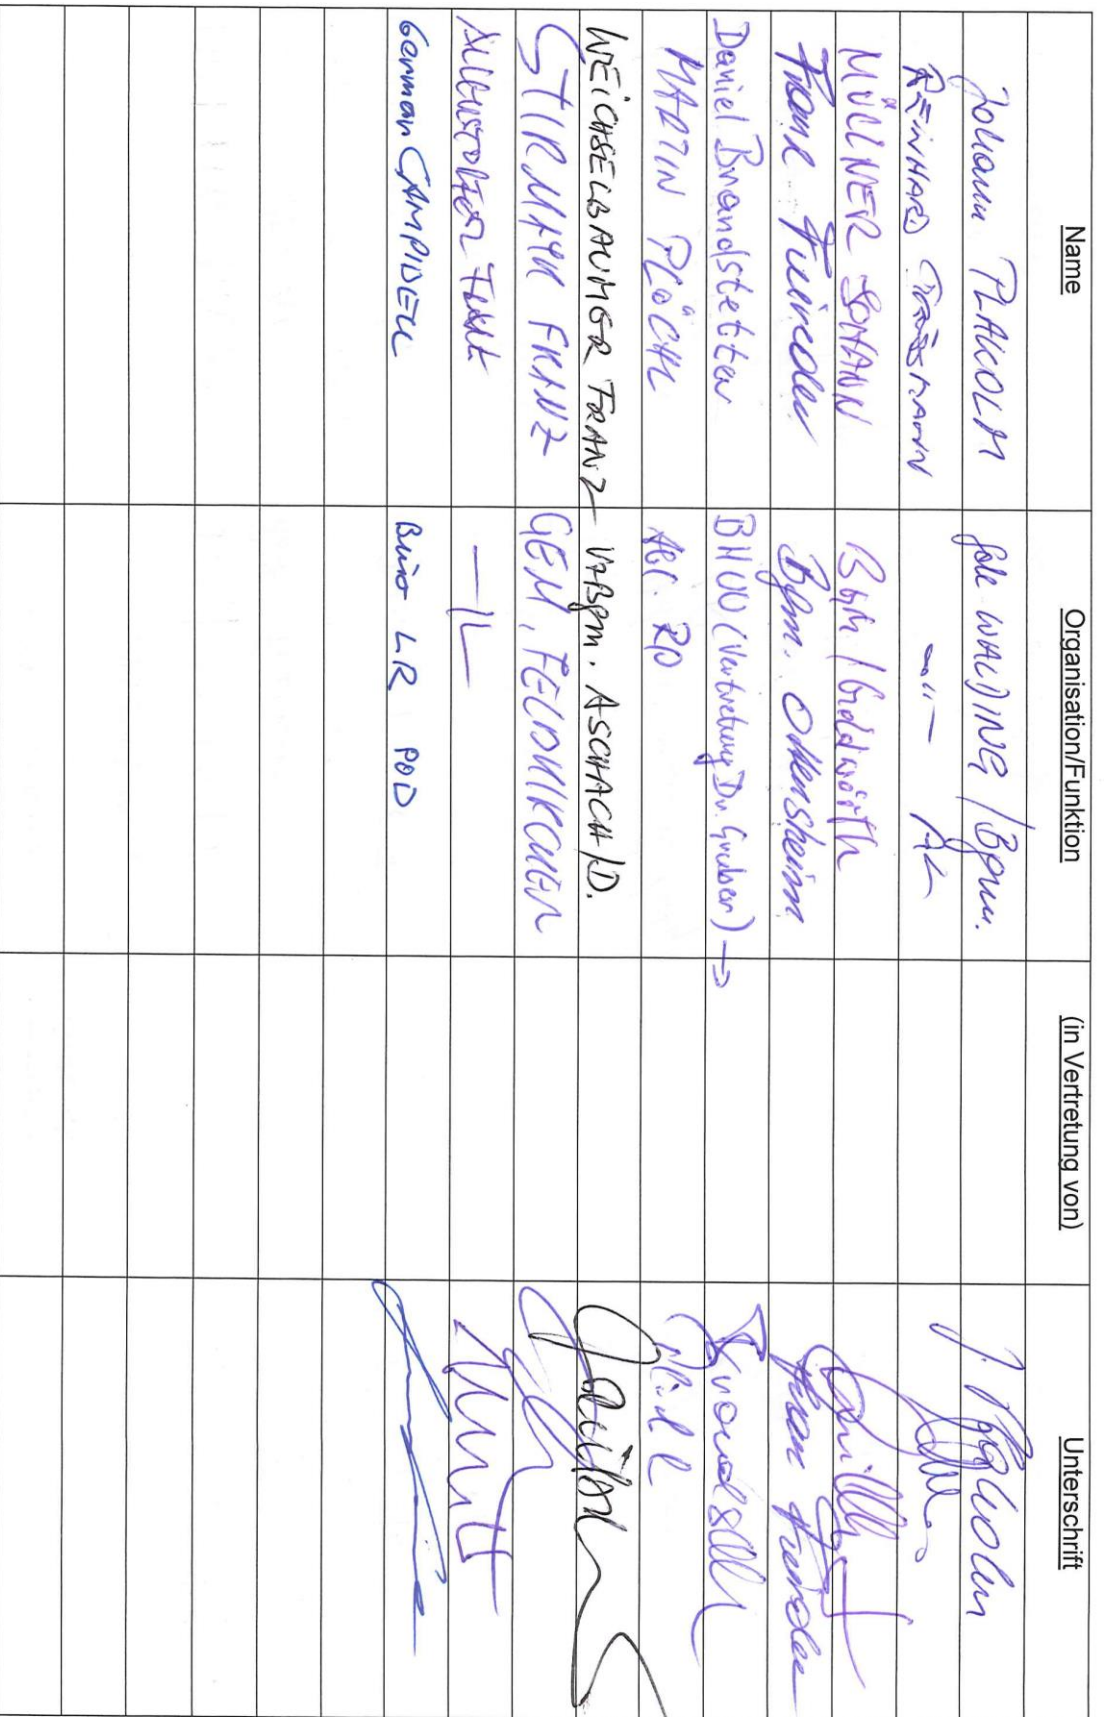 Name Organisation/Funktion (in Vertretung von) Unterschrift
Johann PLAKOLM Gde WALDING / Bgm. J. Plakolm
REINHARD GRÄSSMANN —"— AL
MÜLLNER JOHANN Bgm / Goldwörth
Franz Füreder Bgm. Ottensheim Franz Füreder
Daniel Brandstetter BHUU (Vertretung Dr. Gruber) →
MARTIN PLÖCHL Abt. RO
WEICHSELBAUMER FRANZ VzBgm. ASCHACH/D.
STIRMAYR FRANZ GEM. FELDKIRCHEN
—"—
German CAMPIDELL Büro LR POD